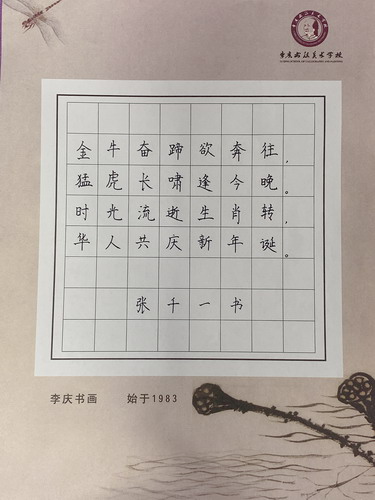 重庆书法美术学校
金牛奋蹄欲奔往，
猛虎长啸逢今晚。
时光流逝生肖转，
华人共庆新年诞。
张千一书
李庆书画 始于1983